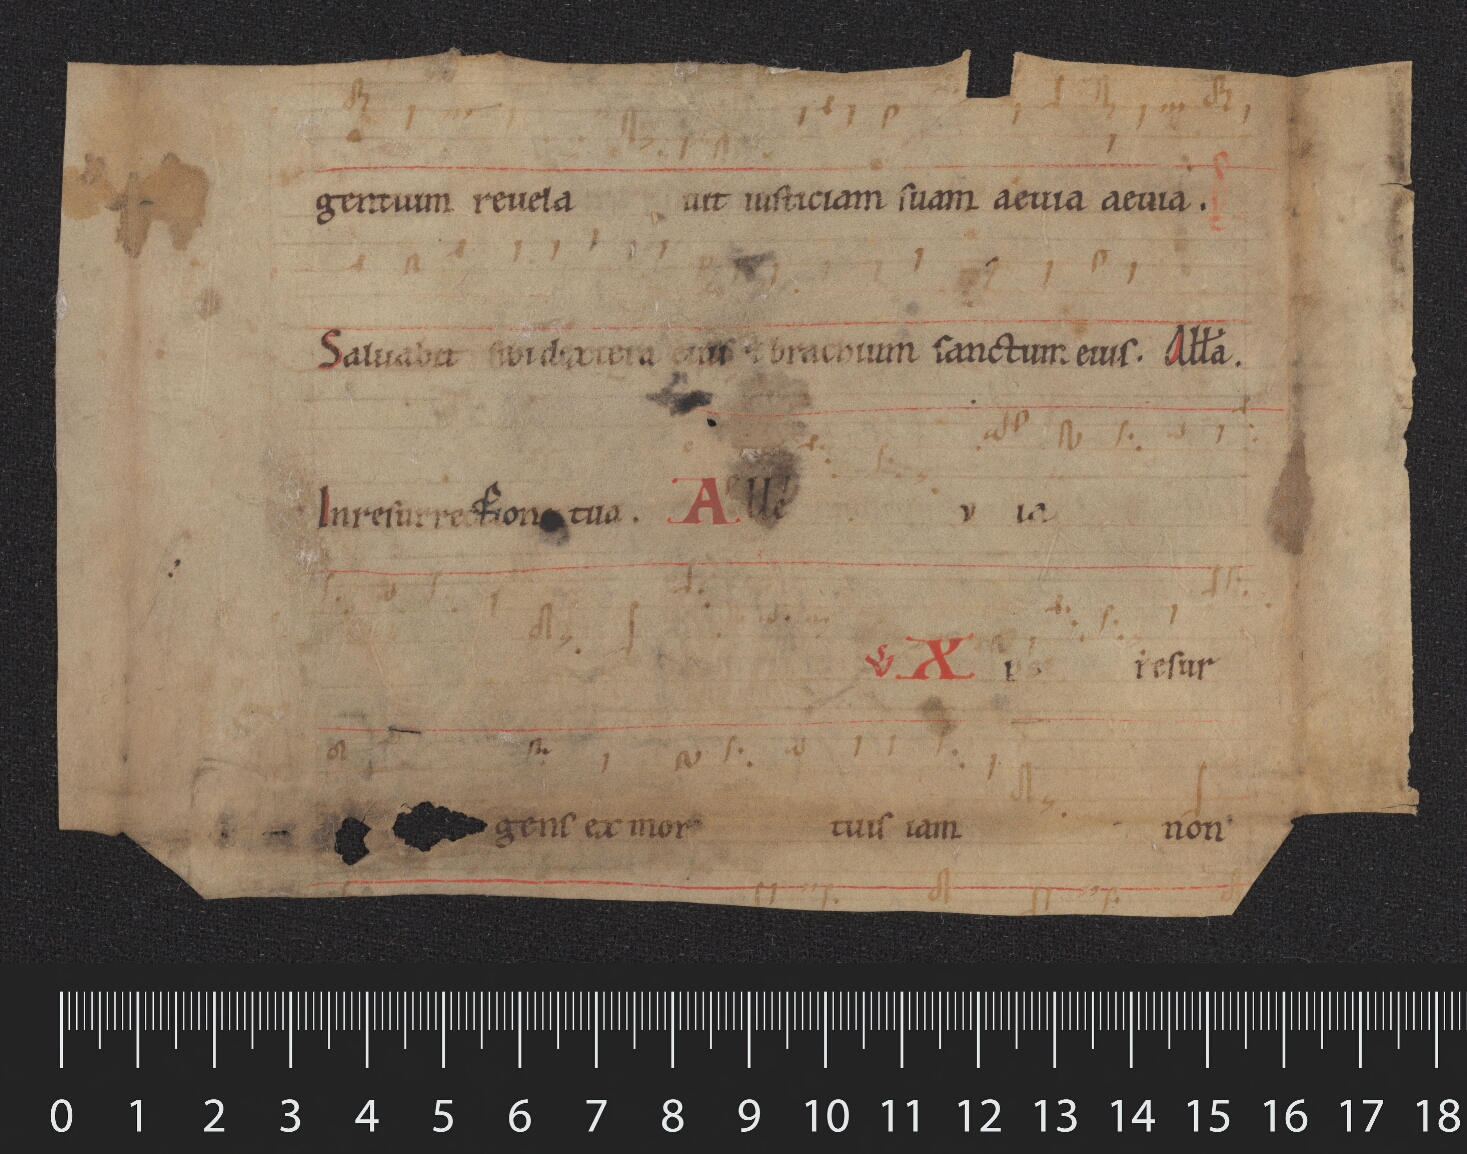 gentium reuela uit iusticiam suam aeuia aeuia.
Saluabit sibi dextera eius & brachium sanctum eius. Alla.
In resurrectione tua. Alle v ia
℣ X pc resur
gens ex mor tuis iam non
0 1 2 3 4 5 6 7 8 9 10 11 12 13 14 15 16 17 18